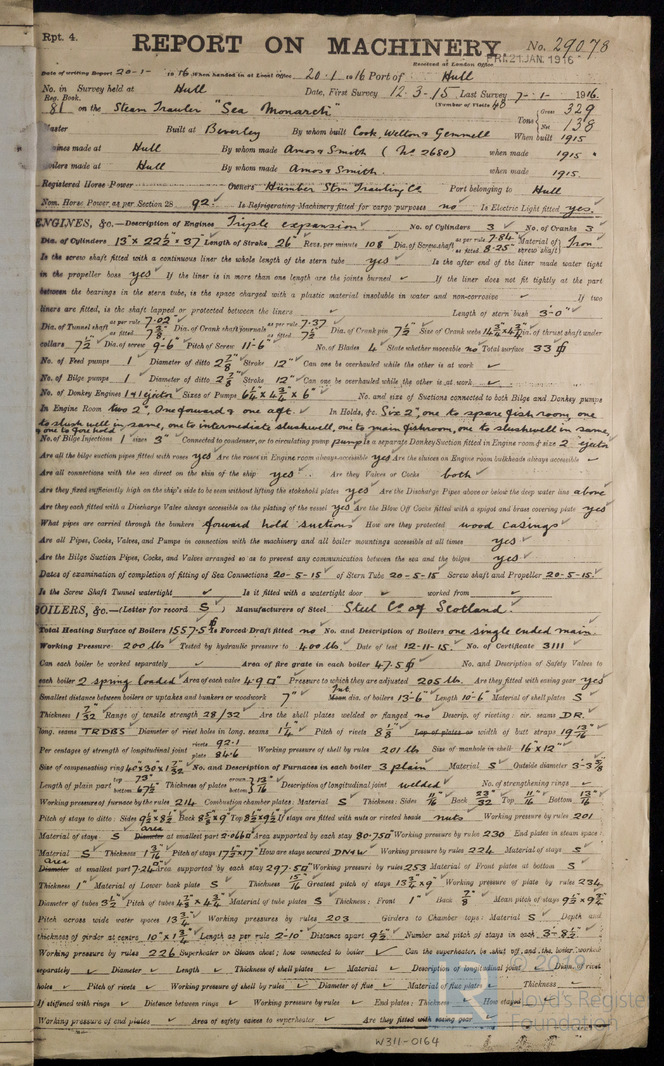 Rpt. 4.
REPORT ON MACHINERY. No. 29078
Received at London Office FRI. 21 JAN. 1916
Date of writing Report 20-1- 1916 When handed in at Local Office 20.1.1916 Port of Hull
No. in Survey held at Hull Date, First Survey 12.3.15 Last Survey 7-1- 1916.
Reg. Book. (Number of Visits 48
81 on the Steam Trawler "Sea Monarch" Tons { Gross 329 Net 138
Master Built at Beverley By whom built Cook, Welton & Gemmell When built 1915
Engines made at Hull By whom made Amos & Smith (No 2680) when made 1915
Boilers made at Hull By whom made Amos & Smith. when made 1915.
Registered Horse Power Owners Humber Stm Trawling Co Port belonging to Hull
Nom. Horse Power as per Section 28 92. Is Refrigerating Machinery fitted for cargo purposes no Is Electric Light fitted yes.
ENGINES, &c.—Description of Engines Triple expansion No. of Cylinders 3 No. of Cranks 3
Dia. of Cylinders 13" x 22½" x 37" Length of Stroke 26" Revs. per minute 108 Dia. of Screw shaft as per rule 7.84" as fitted 8.25" Material of screw shaft Iron
Is the screw shaft fitted with a continuous liner the whole length of the stern tube yes Is the after end of the liner made water tight
in the propeller boss yes If the liner is in more than one length are the joints burned ✓ If the liner does not fit tightly at the part
between the bearings in the stern tube, is the space charged with a plastic material insoluble in water and non-corrosive ✓ If two
liners are fitted, is the shaft lapped or protected between the liners ✓ Length of stern bush 3'-0"
Dia. of Tunnel shaft as per rule 7.02" as fitted 7⅞" Dia. of Crank shaft journals as per rule 7.37" as fitted 7½" Dia. of Crank pin 7½" Size of Crank webs 14¾"x4¾" Dia. of thrust shaft under
collars 7½" Dia. of screw 9-6" Pitch of Screw 11-6" No. of Blades 4 State whether moveable no Total surface 33
No. of Feed pumps 1 Diameter of ditto 2⅞" Stroke 12" Can one be overhauled while the other is at work ✓
No. of Bilge pumps 1 Diameter of ditto 2⅞" Stroke 12" Can one be overhauled while the other is at work ✓
No. of Donkey Engines 1 & 1 ejector Sizes of Pumps 6¼"x4¾"x6" No. and size of Suctions connected to both Bilge and Donkey pumps
In Engine Room two 2". One forward & one aft. In Holds, &c. Six 2", one to spare fish room, one
to slush well in same, one to intermediate slushwell, one to main fishroom, one to slushwell in same,
& one to fore hold
No. of Bilge Injections 1 sizes 3" Connected to condenser, or to circulating pump pump Is a separate Donkey Suction fitted in Engine room & size 2" ejector
Are all the bilge suction pipes fitted with roses yes Are the roses in Engine room always accessible yes Are the sluices on Engine room bulkheads always accessible ✓
Are all connections with the sea direct on the skin of the ship yes Are they Valves or Cocks both
Are they fixed sufficiently high on the ship's side to be seen without lifting the stokehold plates yes Are the Discharge Pipes above or below the deep water line above
Are they each fitted with a Discharge Valve always accessible on the plating of the vessel yes Are the Blow Off Cocks fitted with a spigot and brass covering plate yes
What pipes are carried through the bunkers forward hold suctions How are they protected wood casings
Are all Pipes, Cocks, Valves, and Pumps in connection with the machinery and all boiler mountings accessible at all times yes
Are the Bilge Suction Pipes, Cocks, and Valves arranged so as to prevent any communication between the sea and the bilges yes.
Dates of examination of completion of fitting of Sea Connections 20-5-15 of Stern Tube 20-5-15 Screw shaft and Propeller 20-5-15.
Is the Screw Shaft Tunnel watertight ✓ Is it fitted with a watertight door ✓ worked from ✓
BOILERS, &c.—(Letter for record S) Manufacturers of Steel Steel Co of Scotland.
Total Heating Surface of Boilers 1557.5 Is Forced Draft fitted no No. and Description of Boilers one single ended main.
Working Pressure 200 lbs Tested by hydraulic pressure to 400 lbs Date of test 12-11-15. No. of Certificate 3111
Can each boiler be worked separately ✓ Area of fire grate in each boiler 47.5 No. and Description of Safety Valves to
each boiler 2 spring loaded Area of each valve 4.9 □" Pressure to which they are adjusted 205 lbs Are they fitted with easing gear yes
Smallest distance between boilers or uptakes and bunkers or woodwork 7" Int. Mean dia. of boilers 13-6" Length 10-6" Material of shell plates S
Thickness 1 7/32" Range of tensile strength 28/32 Are the shell plates welded or flanged no Descrip. of riveting: cir. seams DR.
long. seams TRDBS Diameter of rivet holes in long. seams 1¼" Pitch of rivets 8⅛" Lap of plates or width of butt straps 19 13/16"
Per centages of strength of longitudinal joint rivets 92.1 plate 84.6 Working pressure of shell by rules 201 lbs Size of manhole in shell 16"x12"
Size of compensating ring 40"x30"x1 7/32" No. and Description of Furnaces in each boiler 3 plain Material S Outside diameter 3-3⅜"
Length of plain part top 73" bottom 67½" Thickness of plates crown 13/16" bottom 13/16" Description of longitudinal joint welded No. of strengthening rings ✓
Working pressure of furnace by the rules 214 Combustion chamber plates: Material S Thickness: Sides 11/16" Back 23/32" Top 11/16" Bottom 13/16"
Pitch of stays to ditto: Sides 9½"x8½" Back 8⅝"x9" Top 8½"x9½" If stays are fitted with nuts or riveted heads nuts Working pressure by rules 201
Material of stays S area Diameter at smallest part 2.06 □" Area supported by each stay 80.75 □" Working pressure by rules 230 End plates in steam space:
Material S Thickness 1 3/16" Pitch of stays 17½"x17" How are stays secured DN&W Working pressure by rules 224 Material of stays S
area Diameter at smallest part 7.24 □" Area supported by each stay 297.5 □" Working pressure by rules 253 Material of Front plates at bottom S
Thickness 1" Material of Lower back plate S Thickness 15/16" Greatest pitch of stays 13¾"x9" Working pressure of plate by rules 234
Diameter of tubes 3½" Pitch of tubes 4⅞"x4¾" Material of tube plates S Thickness: Front 1" Back ⅞" Mean pitch of stays 9½"x9¾"
Pitch across wide water spaces 13¾" Working pressures by rules 203 Girders to Chamber tops: Material S Depth and
thickness of girder at centre 10"x1¾" Length as per rule 2-10" Distance apart 9½" Number and pitch of stays in each 3-8½"
Working pressure by rules 226 Superheater or Steam chest; how connected to boiler ✓ Can the superheater be shut off, and the boiler worked
separately ✓ Diameter ✓ Length ✓ Thickness of shell plates ✓ Material ✓ Description of longitudinal joint ✓ Diam. of rivet
holes ✓ Pitch of rivets ✓ Working pressure of shell by rules ✓ Diameter of flue ✓ Material of flue plates ✓ Thickness ✓
If stiffened with rings ✓ Distance between rings ✓ Working pressure by rules ✓ End plates: Thickness ✓ How stayed
Working pressure of end plates ✓ Area of safety valves to superheater ✓ Are they fitted with easing gear
© 2019
Lloyd's Register
Foundation
W311-0164